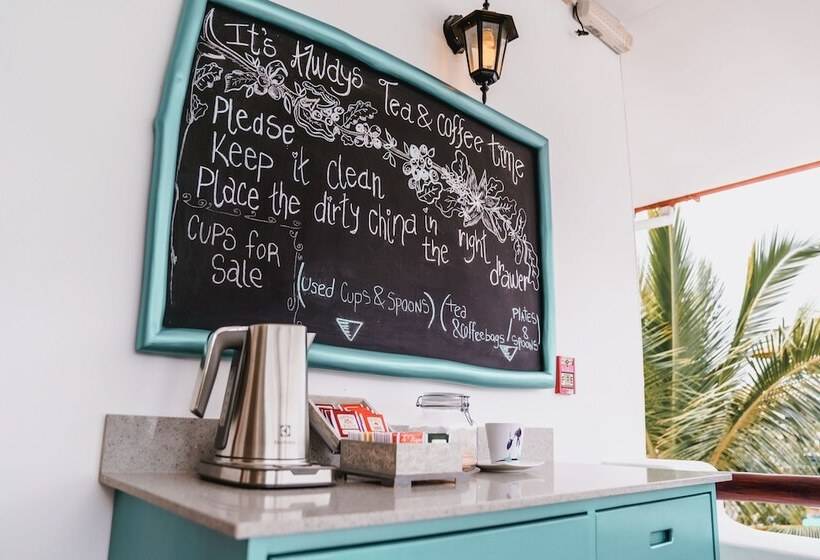 It's Always Tea & coffee time
Please
Keep it clean
Place the dirty china in the right drawer
CUPS FOR
Sale
(used Cups & Spoons)
(tea
& coffee bags / PLATES
& spoons)
Electrolux
FIRE